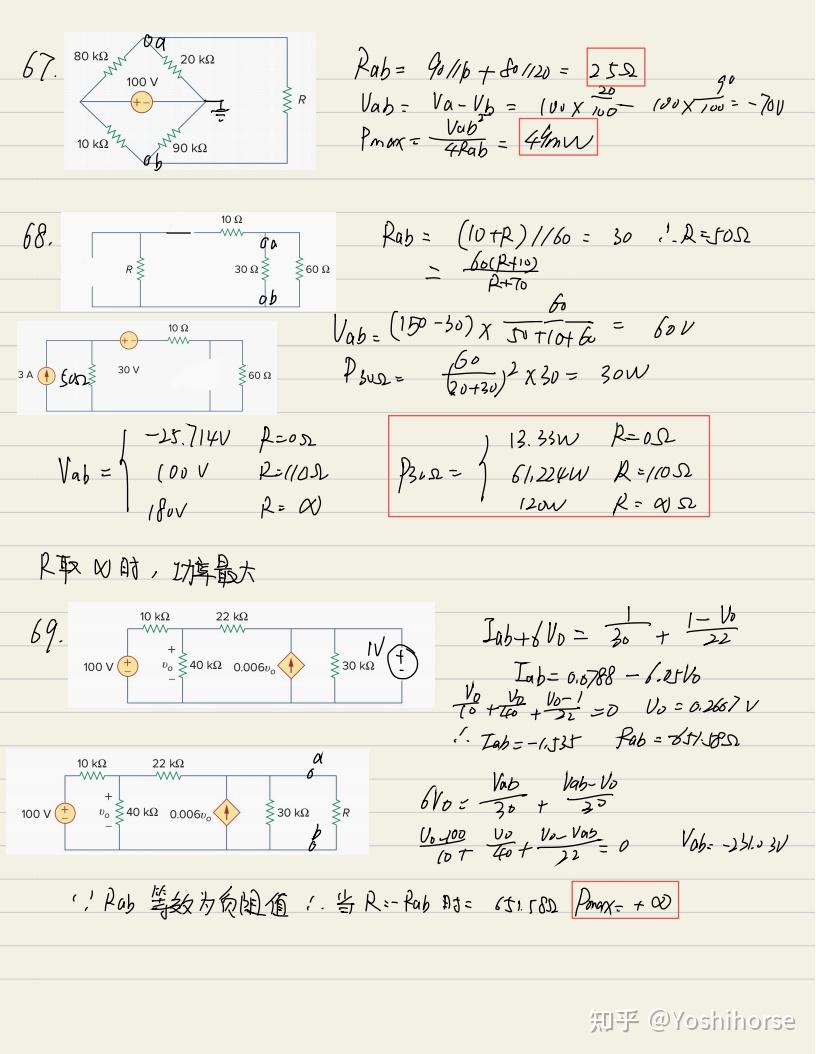 67.
a
80 kΩ
20 kΩ
100 V
+ −
R
10 kΩ
90 kΩ
b
Rab = 90//10 + 80//20 = 25Ω
Vab = Va − Vb = 100 × 20/100 − 100 × 90/100 = −70V
Pmax = Vab²/4Rab = 49mW
68.
10 Ω
a
R
30 Ω
60 Ω
b
Rab = (10+R)//60 = 30 ∴ R=50Ω
= 60(R+10)/R+70
10 Ω
+ −
3 A
50Ω
30 V
60 Ω
Vab = (150−30) × 60/50+10+60 = 60V
P30Ω = (60/30+30)² × 30 = 30W
Vab = { −25.714V R=0Ω
100V R=110Ω
180V R=∞
P30Ω = { 13.33W R=0Ω
61.224W R=110Ω
120W R=∞Ω
R取∞时，功率最大
69.
10 kΩ
22 kΩ
100 V
+
vo
−
40 kΩ
0.006vo
30 kΩ
1V
Iab+6V0 = 1/30 + 1−V0/22
Iab = 0.0788 − 6.05V0
V0/10 + V0/40 + V0−1/22 = 0 V0 = 0.2667V
∴ Iab = −1.535 Rab = −651.58Ω
10 kΩ
22 kΩ
a
100 V
+
vo
−
40 kΩ
0.006vo
30 kΩ
R
b
6V0 = Vab/30 + Vab−V0/30
V0−100/10 + V0/40 + V0−Vab/22 = 0 Vab = −231.03V
∵ Rab 等效为负阻值 ∴ 当 R=−Rab 时= 651.58Ω Pmax= +∞
知乎 @Yoshihorse